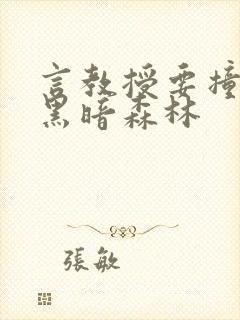 言教授要撞
黑暗森林
張敏